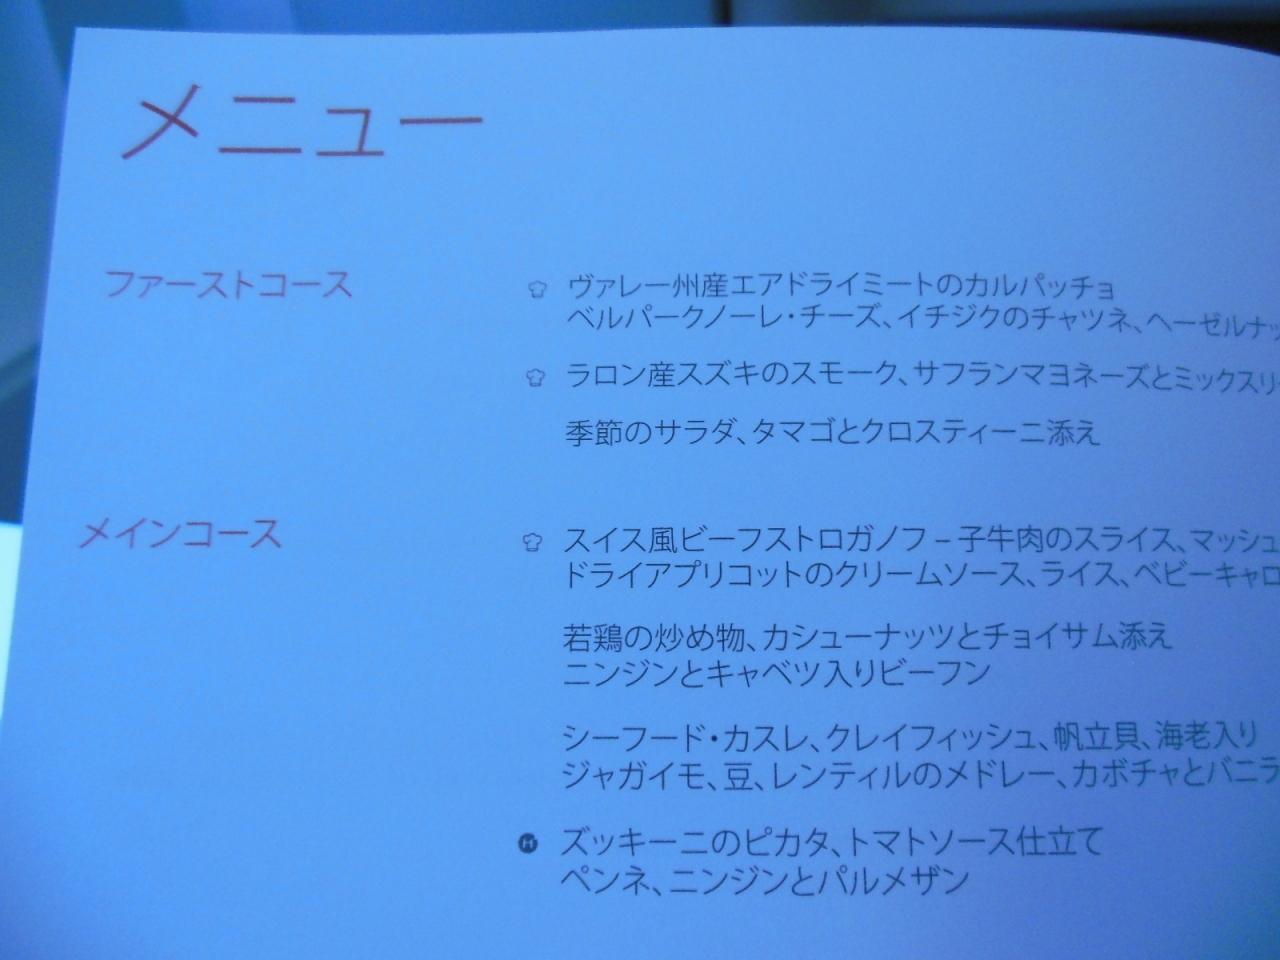 メニュー
ファーストコース
ヴァレー州産エアドライミートのカルパッチョ
ベルパークノーレ・チーズ、イチジクのチャツネ、ヘーゼルナッ
ラロン産スズキのスモーク、サフランマヨネーズとミックスリー
季節のサラダ、タマゴとクロスティーニ添え
メインコース
スイス風ビーフストロガノフ – 子牛肉のスライス、マッシュ
ドライアプリコットのクリームソース、ライス、ベビーキャロ
若鶏の炒め物、カシューナッツとチョイサム添え
ニンジンとキャベツ入りビーフン
シーフード・カスレ、クレイフィッシュ、帆立貝、海老入り
ジャガイモ、豆、レンティルのメドレー、カボチャとバニラ
ズッキーニのピカタ、トマトソース仕立て
ペンネ、ニンジンとパルメザン